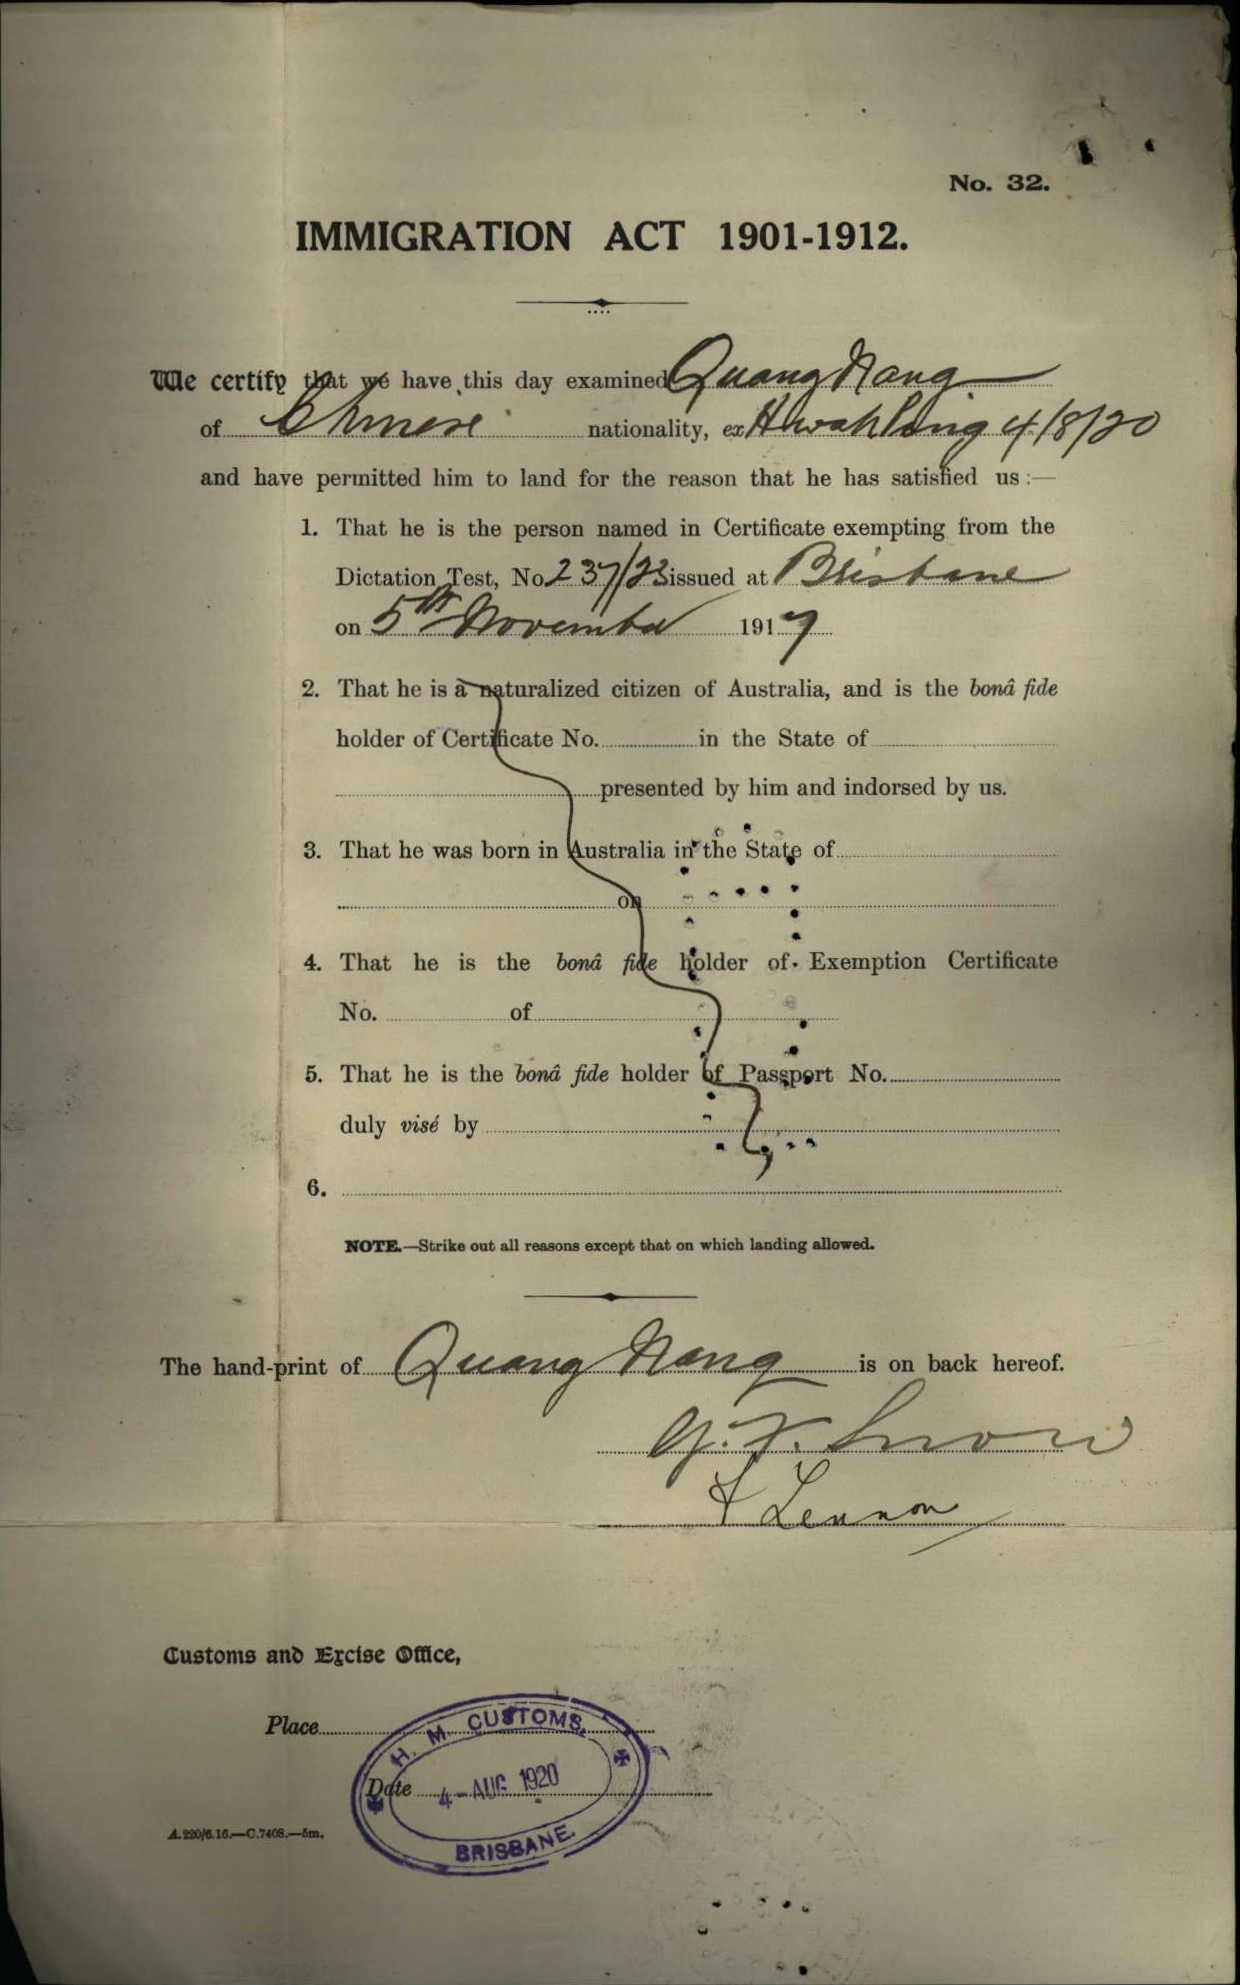 No. 32.
IMMIGRATION ACT 1901-1912.
We certify that we have this day examined Quang Nang
of Chinese nationality, ex Hwah Ping 4/8/20
and have permitted him to land for the reason that he has satisfied us :—
1. That he is the person named in Certificate exempting from the
Dictation Test, No 237/23 issued at Brisbane
on 5th November 1917
2. That he is a naturalized citizen of Australia, and is the bonâ fide
holder of Certificate No. in the State of
presented by him and indorsed by us.
3. That he was born in Australia in the State of
on
4. That he is the bonâ fide holder of Exemption Certificate
No. of
5. That he is the bonâ fide holder of Passport No.
duly visé by
6.
NOTE.—Strike out all reasons except that on which landing allowed.
The hand-print of Quang Nang is on back hereof.
Snow
Lennon
Customs and Excise Office,
Place
H. M. CUSTOMS.
Date 4 – AUG 1920
BRISBANE.
A.220/6.16.—C.7408.—5m.